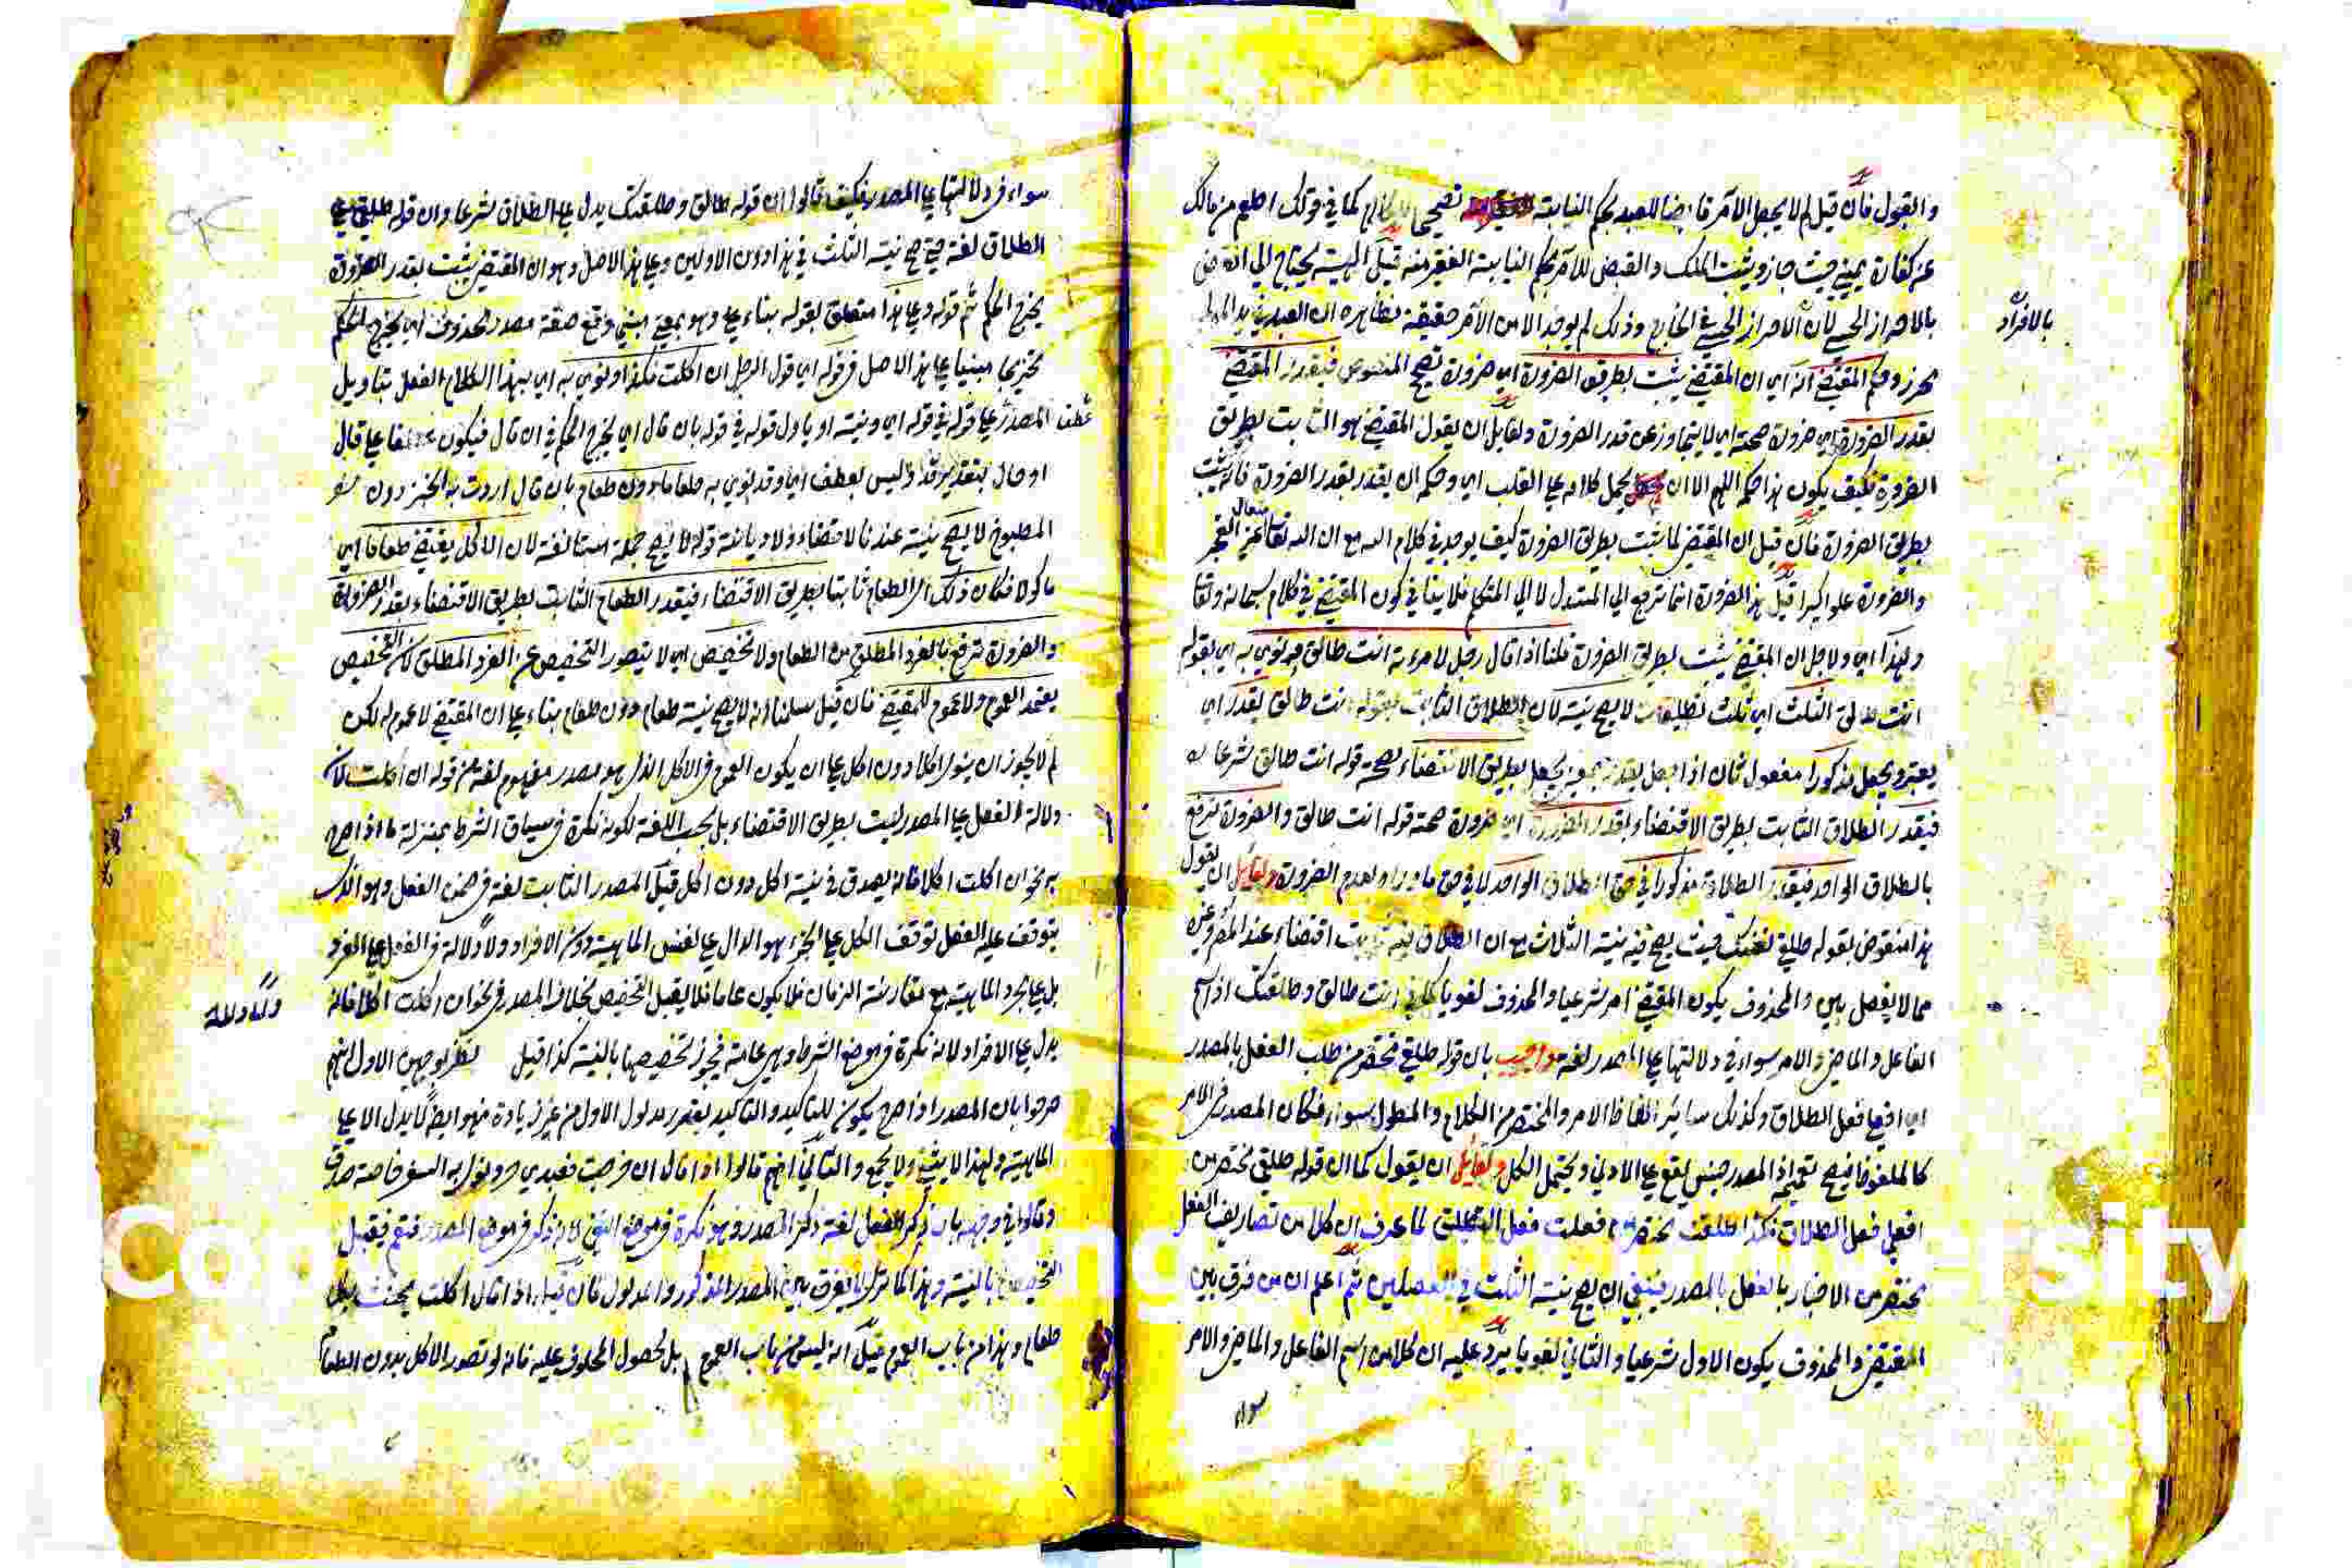 والقبول فان قيل لم لا يجعل الآمر قابضا للعبد بحكم النيابة تصحيحا للكلام كما في قولك اطعم من مالك
عن كفارة يميني حيث جاز ويثبت الملك والقبض للآمر بحكم النيابة الفقير منه قيل الهبة يحتاج الى القبض
بالاحراز الحسي لان الاحراز الحسي في الخارج وذلك لم يوجد الا من الآمر حقيقة نظاهره ان العبد في يد المولى
بالافراد
محرز وحكم المقتضى انه اي ان المقتضى يثبت بطريق الضرورة اي ضرورة تصحيح المنصوص فيقدر المقتضى
بقدر الضرورة اي ضرورة صحته اي لا يتجاوز عن قدر الضرورة ولقايل ان يقول المقتضى هو الثابت بطريق
الضرورة فكيف يكون هذا حكمه اللهم الا ان يحمل كلامه على القلب اي وحكمه ان يقدر بقدر الضرورة فانه يثبت
بطريق الضرورة فان قيل ان المقتضى لما يثبت بطريق الضرورة كيف يوجد في كلام الله مع ان الله تعالى متعال عن العجز
والضرورة علوا كبيرا قيل هذا الضرورة انما ترجع الى المستدل لا الى المتكلم فلا ينافي كون المقتضى في كلام سبحانه وتعالى
ولهذا اي ولاجل ان المقتضى يثبت بطريق الضرورة قلنا اذا قال رجل لامرءته انت طالق ونوى به اي بقوله
انت طالق الثلث اي ثلث تطليقات لا يصح نيته لان الطلاق الثابت بقوله انت طالق يقدر اي
يعتبر ويجعل مذكورا مفعول ثان اذا جعل يقدر بمعنى يجعل بطريق الاقتضاء لصحة قوله انت طالق شرعا
فيقدر الطلاق الثابت بطريق الاقتضاء بقدر الضرورة اي ضرورة صحة قوله انت طالق والضرورة ترتفع
بالطلاق الواحد فيقدر الطلاق مذكورا في حق الطلاق الواحد لا في حق ما وراءه لعدم الضرورة ولقايل ان يقول
هذا منقوض بقوله طلقي نفسك حيث يصح فيه نية الثلاث مع ان الطلاق فيه ثابت اقتضاء عند المص وغيره
مما لا يفصل بين والمحذوف يكون المقتضى امر شرعيا والمحذوف لغويا كما في انت طالق وطلقتك اذ اسم
الفاعل والماضي والامر سواء في دلالتها على المصدر لغة واجيب بان قوله طلقي مختصر من طلب الفعل بالمصدر
اي افعلي فعل الطلاق وكذلك سائر الفاظ الامر والمختصر من الكلام والمطول سواء فكان المصدر في الامر
كالملفوظ فيصح تعميمه اذ المصدر جنس يقع على الادنى ويحتمل الكل ولقايل ان يقول كما ان قوله طلقي مختصر من
افعلي فعل الطلاق فكذا طلقت مختصر من فعلت فعل التطليق لما عرف ان كلا من تصاريف الفعل
مختصر من الاخبار بالفعل بالمصدر فينبغي ان يصح نية الثلث في الفصلين ثم اعلم ان من فرق بين
المقتضى والمحذوف يكون الاول شرعيا والثاني لغويا يرد عليه ان كلا من اسم الفاعل والماضي والامر
سواء
سواء في دلالتها على المصدر فكيف قالوا ان قوله طالق وطلقتك يدل على الطلاق شرعا وان قوله طلقي على
الطلاق لغة حتى صح نية الثلث في هذا دون الاولين وعلى هذا الاصل وهو ان المقتضى يثبت بقدر الضرورة
يخرج الحكم ثم قوله وعلى هذا متعلق بقوله بناء على وهو بمعنى مبني وقع صفة مصدر محذوف اي يخرج الحكم
تخريجا مبنيا على هذا الاصل في قوله اي قول الرجل ان اكلت فكذا ونوى به اي بهذا الكلام الفعل بتاويل
المصدر على قوله في قوله اي ونيته او ياول قوله في قوله بان قال اي يخرج الحكم في ان قال فيكون عطفا على قال
عطف
او حال بتقدير قد وليس بعطف اي وقد نوى به طعاما دون طعام بان قال اردت به الخبز دون
المطبوخ لا يصح نيته عندنا لا قضاء ولا ديانة قوله لا يصح جملة مستانفة لان الاكل يقتضي طعاما اي
ماكولا فكان ذلك اي الطعام ثابتا بطريق الاقتضاء فيقدر الطعام الثابت بطريق الاقتضاء بقدر الضرورة
والضرورة ترتفع بالفرد المطلق من الطعام ولا تخصيص اي لا يتصور التخصيص عن الفرد المطلق لان التخصيص
يعتمد العموم ولا عموم للمقتضى فان قيل سلمنا انه لا يصح نية طعام دون طعام بناء على ان المقتضى لا عموم له لكن
لم لا يجوز ان ينوي اكلا دون اكل على ان يكون العموم في الاكل الذي هو مصدر مفهوم لغة من قوله ان اكلت لان
دلالة الفعل على المصدر ليست بطريق الاقتضاء بل بحسب اللغة لكونه نكرة في سياق الشرط بمنزلة ما اذا صرح
به نحو ان اكلت اكلا فانه يصدق في نية اكل دون اكل قيل المصدر الثابت لغة في ضمن الفعل وهو الذي
يتوقف عليه الفعل توقف الكل على الجزء هو الدال على نفس الماهية دون الافراد ولا دلالة في الفعل على الفرد
بل على مجرد الماهية مع مقارنة الزمان فلا يكون عاما فلا يقبل التخصيص بخلاف المصدر في نحو ان اكلت اكلا فانه
ولا دلالة
يدل على الافراد لانه نكرة في موضع الشرط وهي عامة فيجوز تخصيصها بالنية كذا قيل لوجهين الاول انهم
صرحوا بان المصدر اذا صرح يكون للتاكيد والتاكيد يقرر مدلول الاول من غير زيادة فهو ايضا لا يدل الا على
الماهية ولهذا لا يثنى ولا يجمع والثاني انهم قالوا اذا قال ان خرجت فعبدي حر ونوى به السفر خاصة صدق
وقالوا في وجهه بان ذكر الفعل لغة ذكر المصدر وهو نكرة في موضع النفي في موضع المصدر فتعم فيقبل
التخصيص بالنية وهذا كما ترى لا يفرق بين المصدر المذكور والمدلول فان قيل اذا قال ان اكلت يحنث بكل
طعام وهذا من باب العموم قيل انه ليس من باب العموم بل لحصول المحلوف عليه فانه لو تصور الاكل بدون الطعام